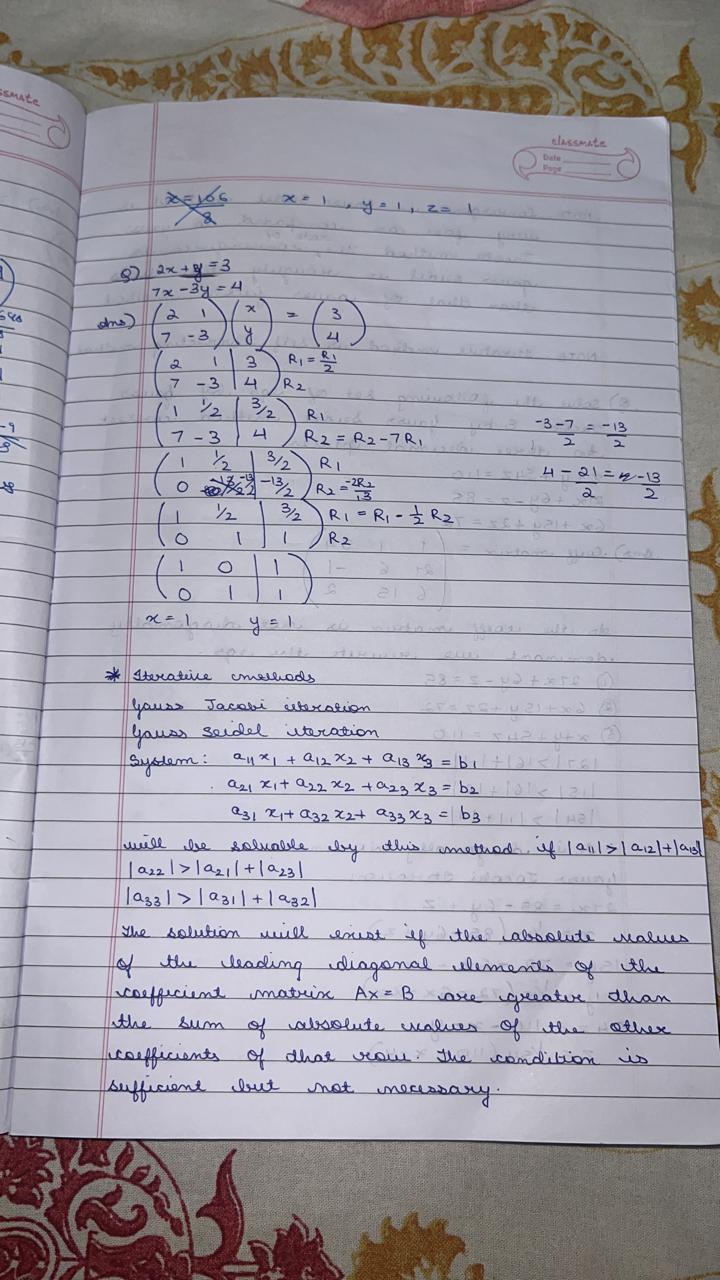 classmate
Date
Page
x = 1 , y = 1 , z = 1
Q) 2x + y = 3
7x - 3y = 4
Ans) ( 2 1 ; 7 -3 ) ( x ; y ) = ( 3 ; 4 )
( 2 1 | 3 ) R1 = R1/2
( 7 -3 | 4 ) R2
( 1 1/2 | 3/2 ) R1
( 7 -3 | 4 ) R2 = R2 - 7R1
-3-7/2 = -13/2
( 1 1/2 | 3/2 ) R1
( 0 -13/2 | -13/2 ) R2 = -2R2/13
4 - 21/2 = -13/2
( 1 1/2 | 3/2 ) R1 = R1 - 1/2 R2
( 0 1 | 1 ) R2
( 1 0 | 1 )
( 0 1 | 1 )
x = 1 y = 1
* Iterative methods
Gauss Jacobi iteration
Gauss Seidel iteration
System: a11 x1 + a12 x2 + a13 x3 = b1
a21 x1 + a22 x2 + a23 x3 = b2
a31 x1 + a32 x2 + a33 x3 = b3
will be solvable by this method if |a11| > |a12| + |a13|
|a22| > |a21| + |a23|
|a33| > |a31| + |a32|
The solution will exist if the absolute values
of the leading diagonal elements of the
coefficient matrix Ax = B are greater than
the sum of absolute values of the other
coefficients of that row. The condition is
sufficient but not necessary.